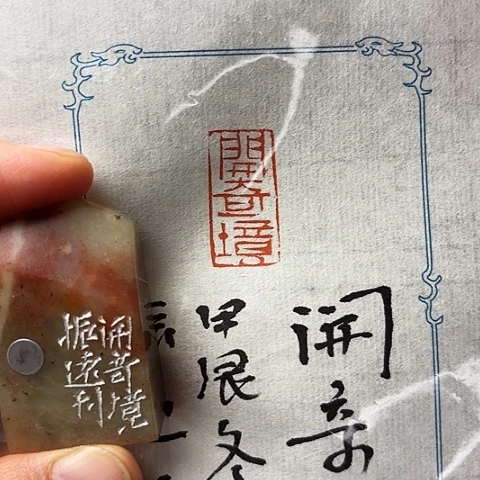 開奇境
開奇
甲辰冬
開奇境
振遠刊